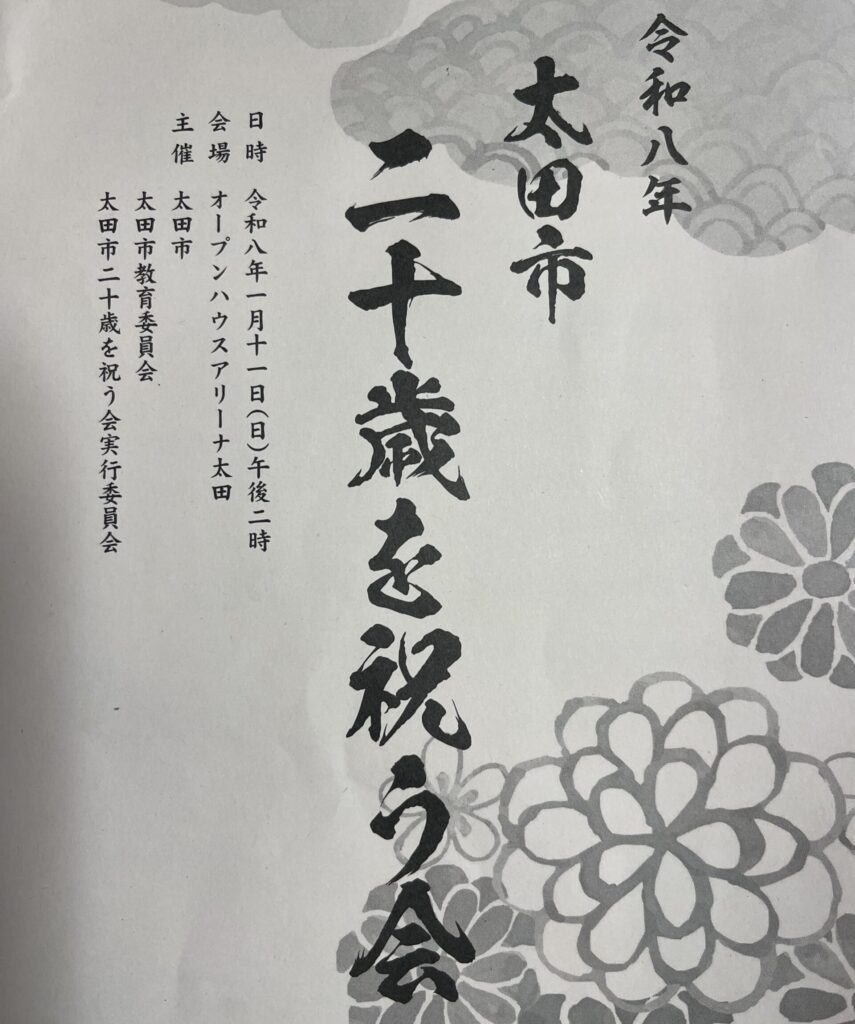 令和八年
太田市
二十歳を祝う会
日時 令和八年一月十一日(日)午後二時
会場 オープンハウスアリーナ太田
主催 太田市
太田市教育委員会
太田市二十歳を祝う会実行委員会